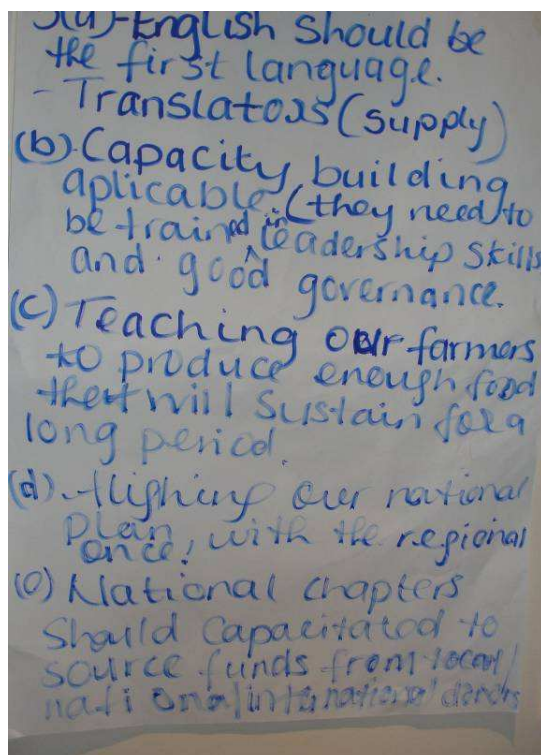 3(a)-English should be
the first language.
- Translators (supply)
(b). Capacity building
aplicable. (they need to
be trained in leadership skills
and good governance.
(c) Teaching our farmers
to produce enough food
that will sustain for a
long period.
(d). Alighing our national
plan, with the regional
once!
(e) National chapters
should capacitated to
source funds from local/
national/international donors